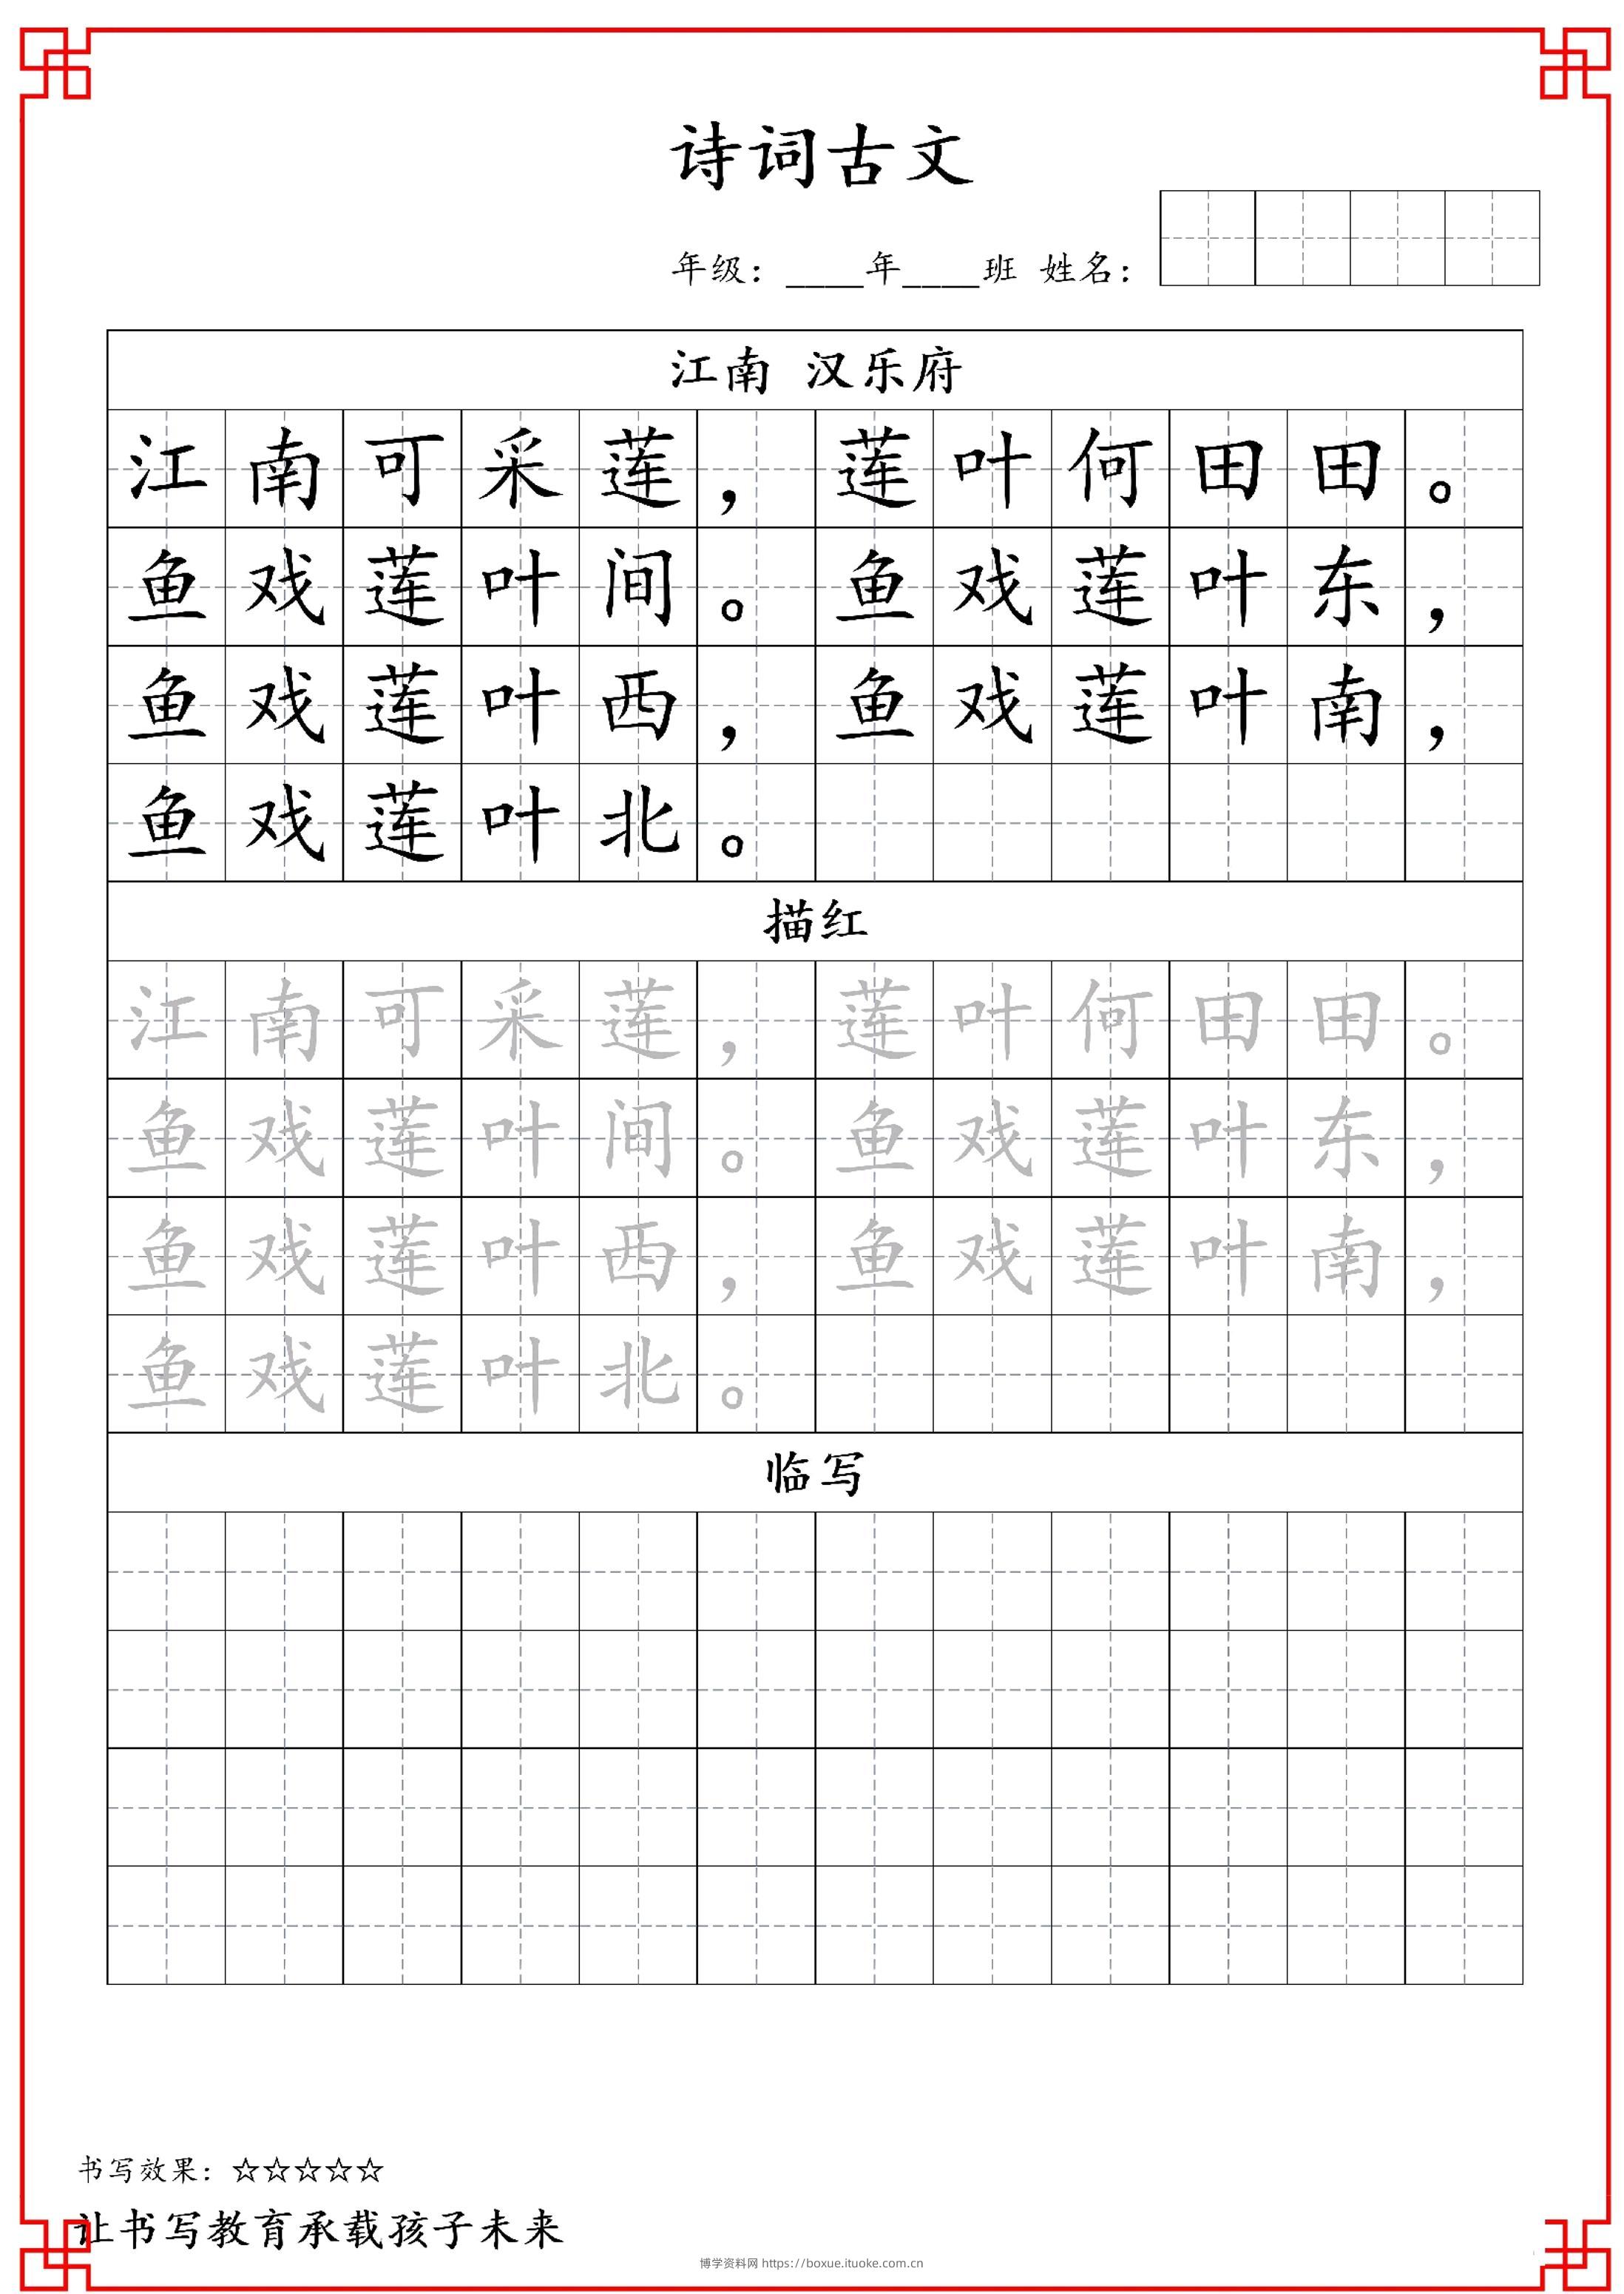 诗词古文
年级：____年____班 姓名：
江南 汉乐府
江南可采莲，莲叶何田田。
鱼戏莲叶间。鱼戏莲叶东，
鱼戏莲叶西，鱼戏莲叶南，
鱼戏莲叶北。
描红
江南可采莲，莲叶何田田。
鱼戏莲叶间。鱼戏莲叶东，
鱼戏莲叶西，鱼戏莲叶南，
鱼戏莲叶北。
临写
书写效果：☆☆☆☆☆
让书写教育承载孩子未来
博学资料网 https://boxue.ituoke.com.cn